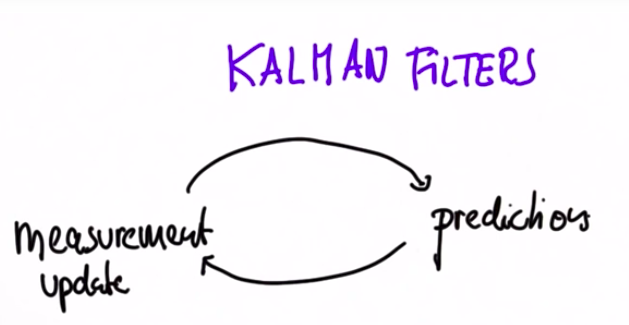 KALMAN FILTERS
measurement
update
prediction